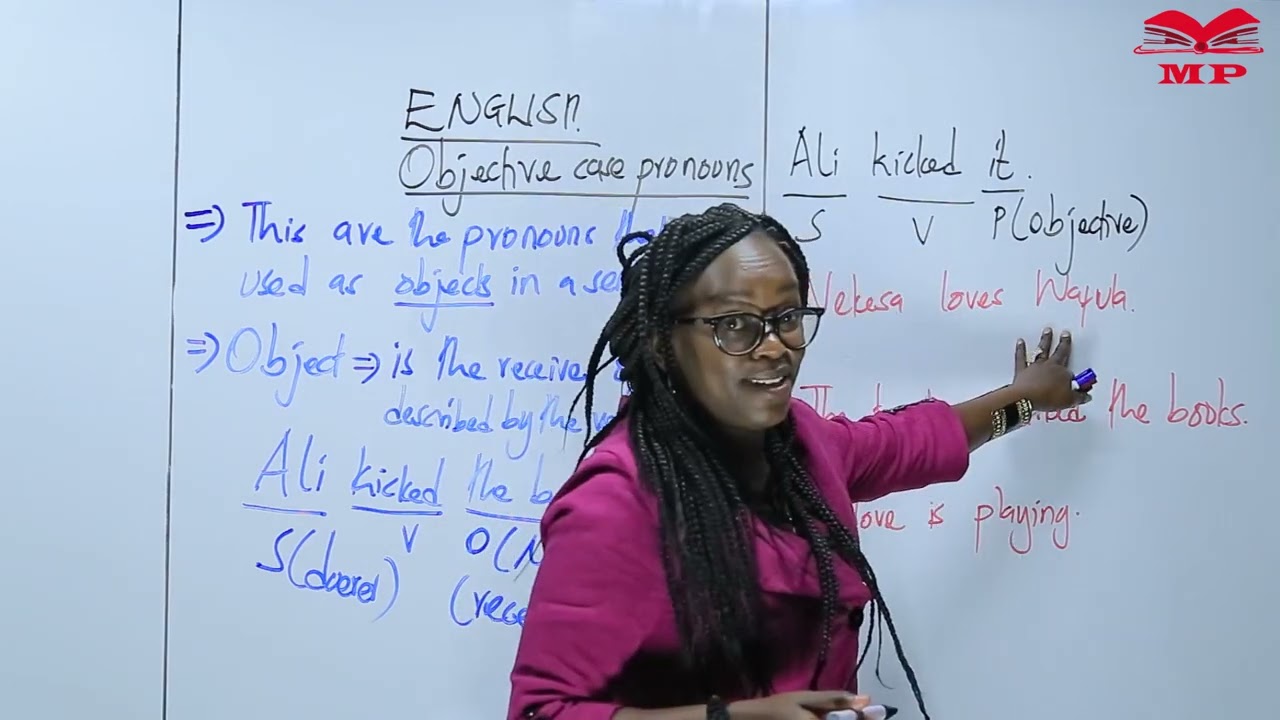 MP
ENGLISH
Objective case pronouns
=> This are the pronouns
used as objects in a
=> Object => is the receive
described by the
Ali kicked the b
S(doerer) V O(N
(rece
Ali kicked it.
S V P(objective)
Nekesa loves Wafula.
The the books.
love is playing.